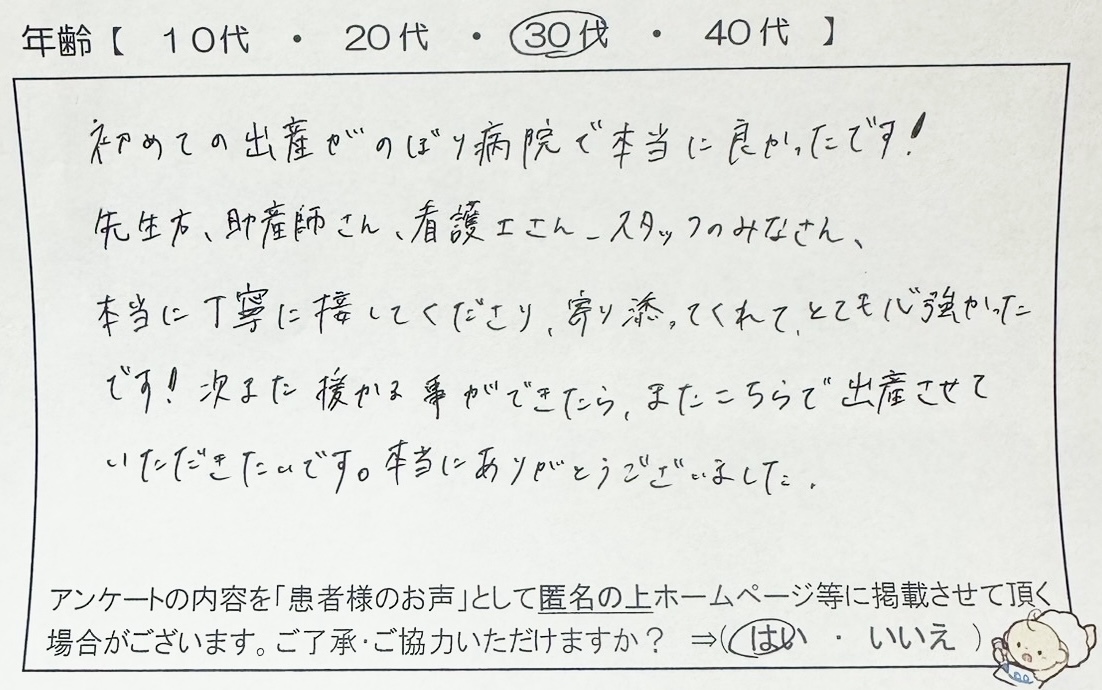 年齢【 10代 ・ 20代 ・ 30代 ・ 40代 】
初めての出産がのぼり病院で本当に良かったです!
先生方、助産師さん、看護士さん、スタッフのみなさん、
本当に丁寧に接してくださり、寄り添ってくれて、とても心強かった
です!次また授かる事ができたら、またこちらで出産させて
いただきたいです。本当にありがとうございました。
アンケートの内容を「患者様のお声」として匿名の上ホームページ等に掲載させて頂く
場合がございます。ご了承・ご協力いただけますか? ⇒( はい ・ いいえ )